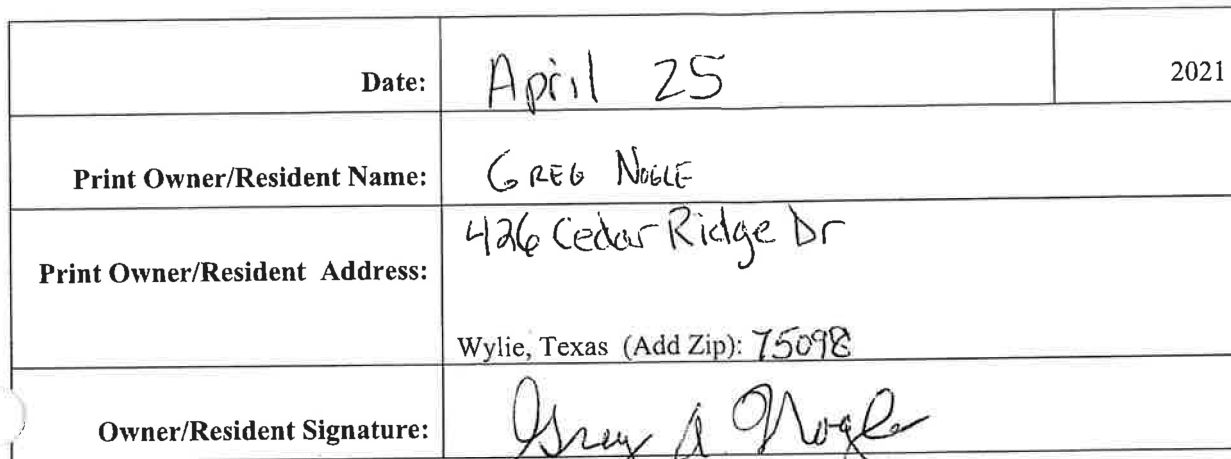 Date: April 25 2021
Print Owner/Resident Name: GREG NOGLE
Print Owner/Resident Address: 426 Cedar Ridge Dr
Wylie, Texas (Add Zip): 75098
Owner/Resident Signature: Greg A Nogle